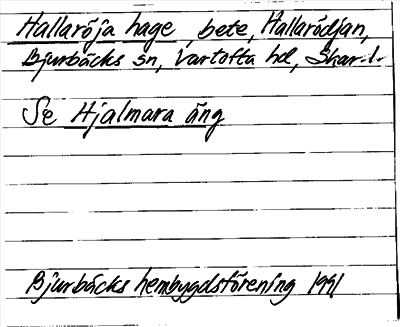 Hallaröja hage, bete, Hallarödjan,
Bjurbäcks sn, Vartofta hd, Skar.l.
Se Hjalmara äng
Bjurbäcks hembygdsförening 1991